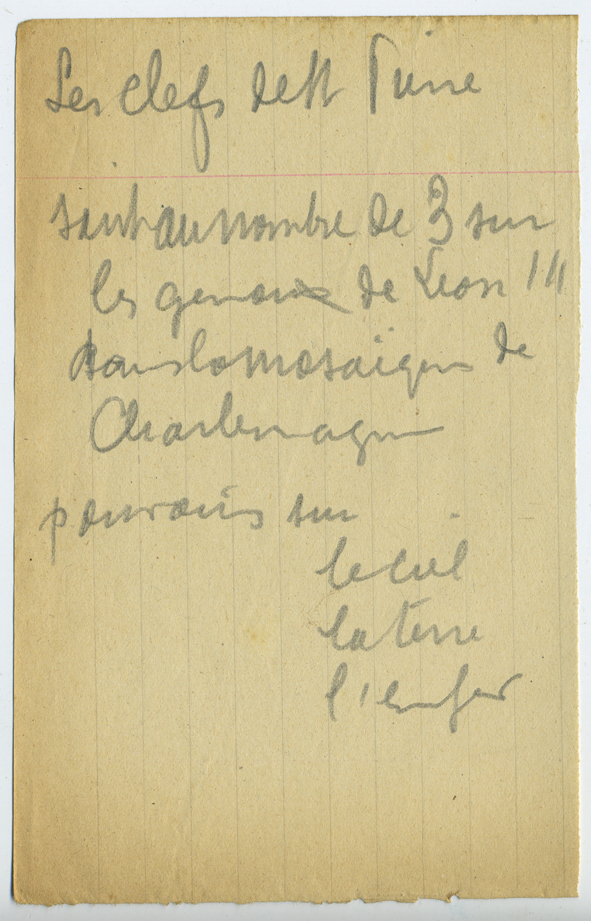 Les clefs de St Pierre
sont au nombre de 3 sur
les genoux de Leon III
dans la mosaïque de
Charlemagne
pouvoirs sur
le ciel
la terre
l'enfer